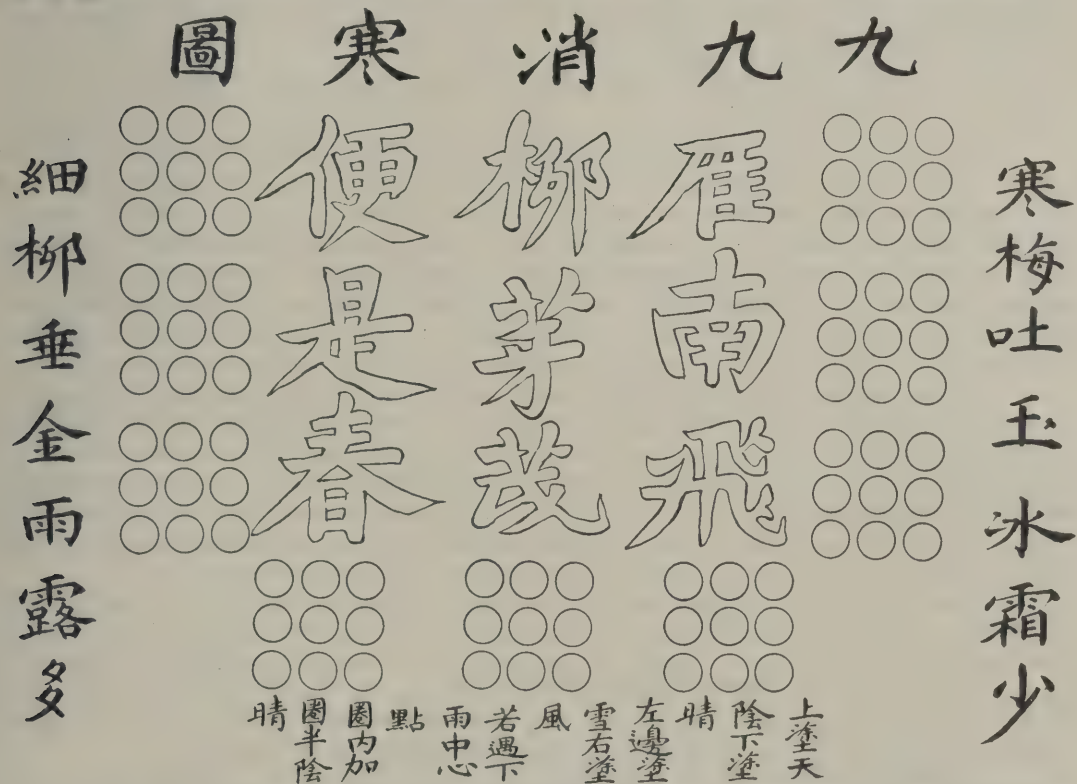 九九消寒圖
寒梅吐玉冰霜少
雁南飛
柳芽茂
便是春
細柳垂金雨露多
上塗天
陰下塗
晴
左邊塗
雪右塗
風
若遇下
雨中心
點
圈內加
圈半陰
晴